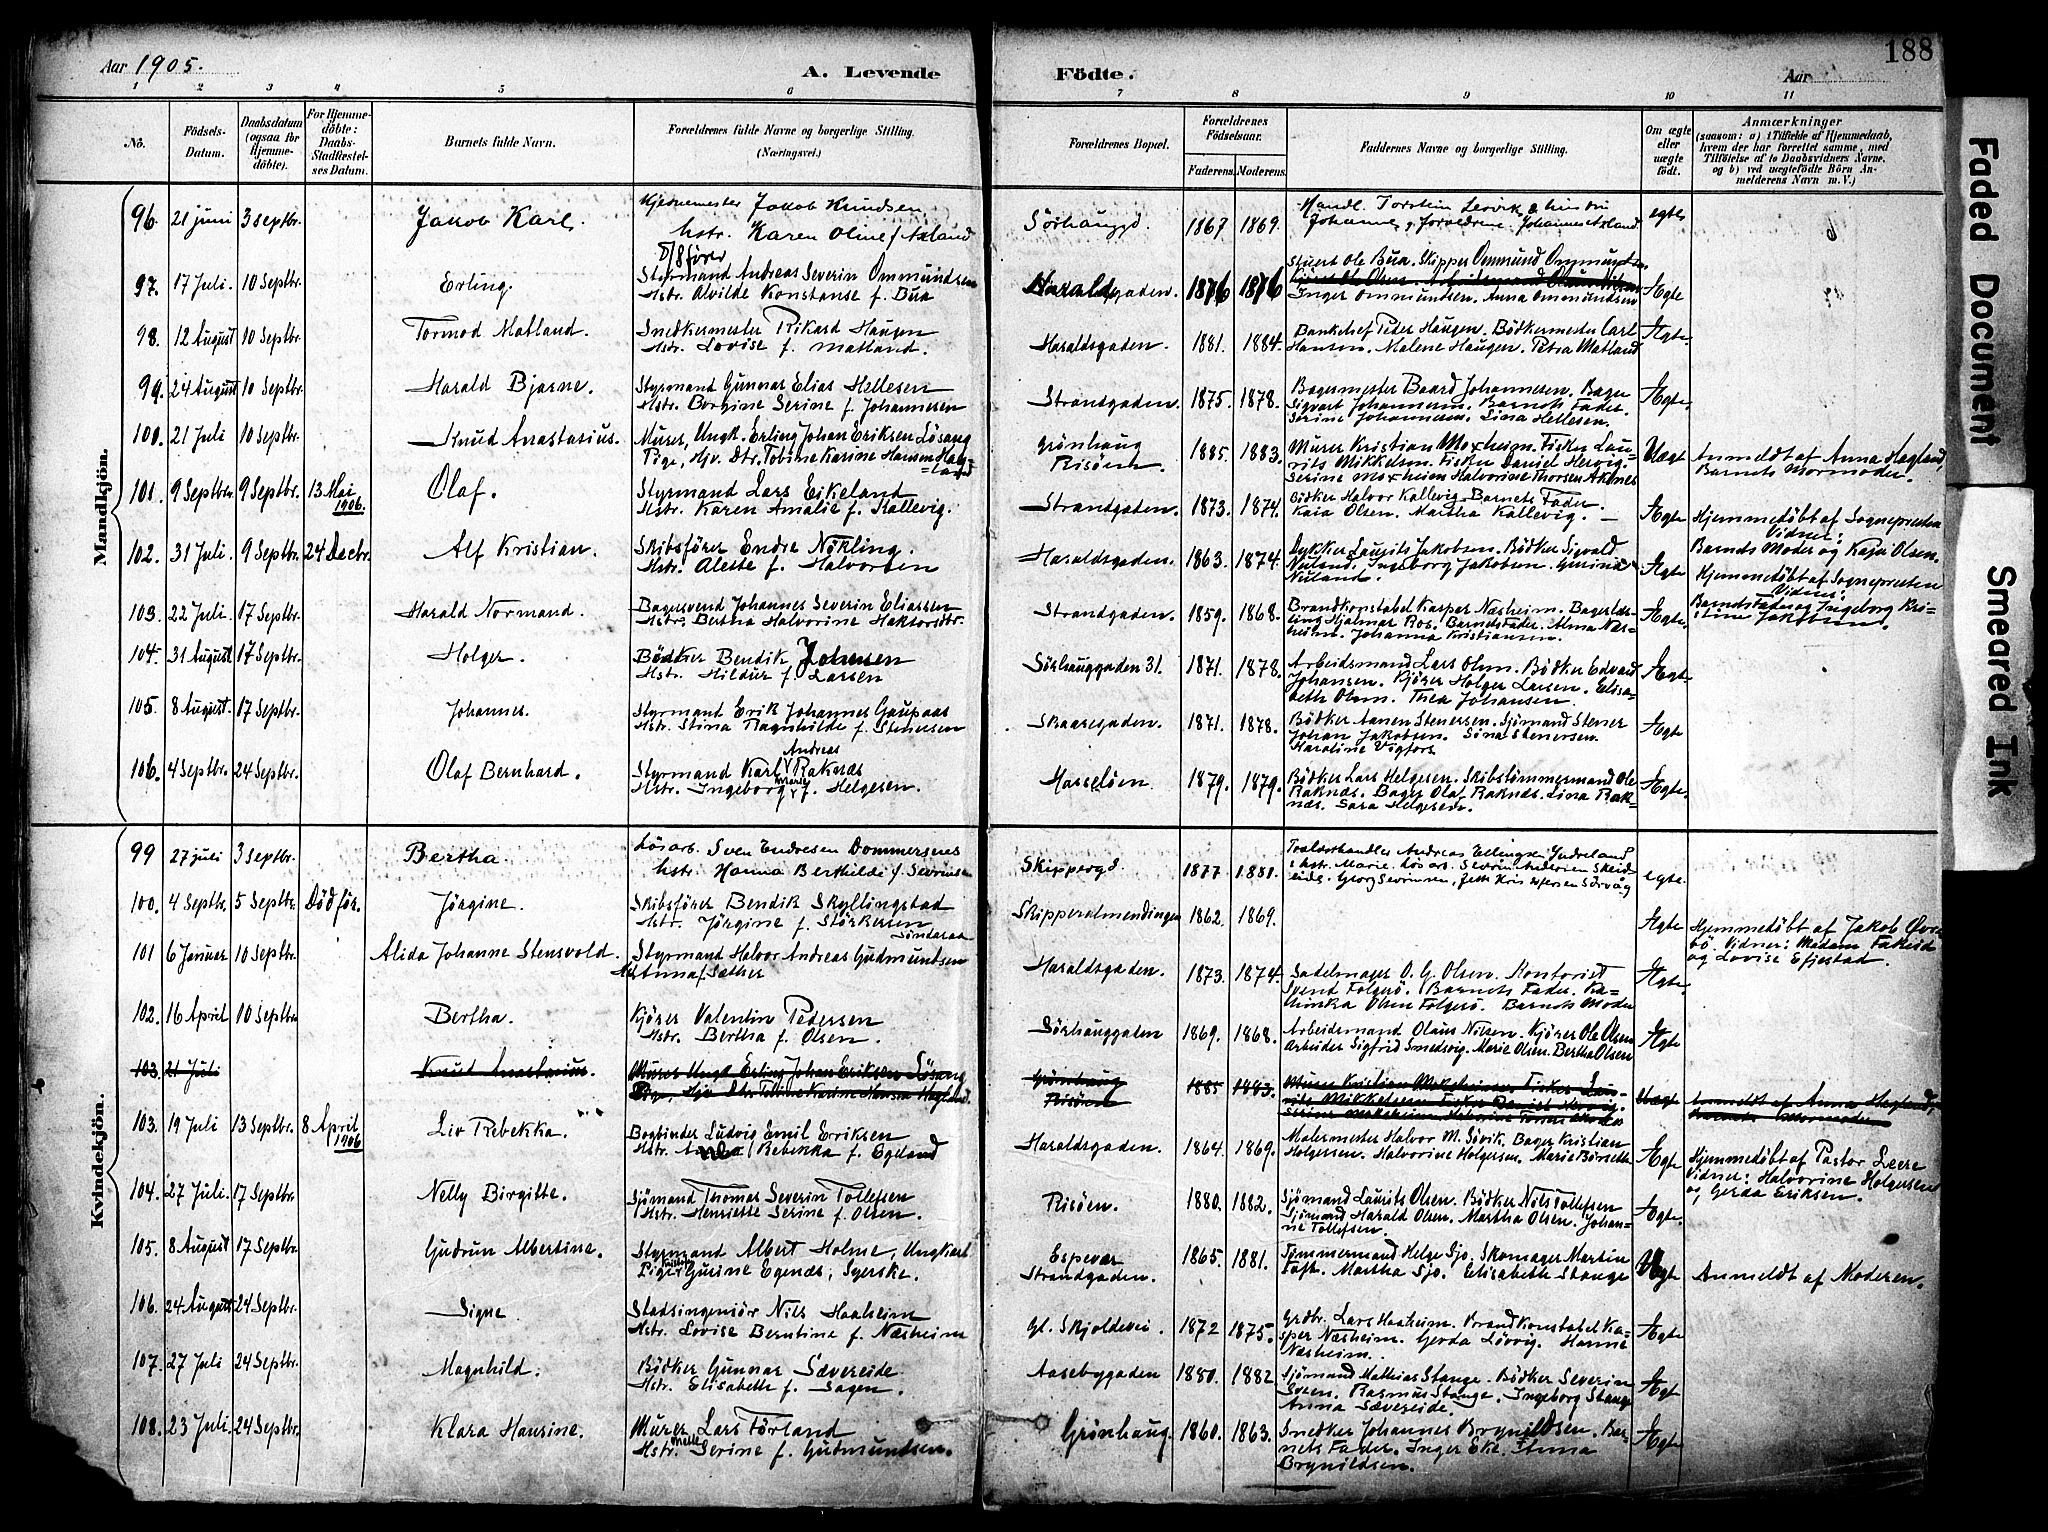 188
Aar 1905.
A. Levende
Födte.
Aar
1 2 3 4 5 6 7 8 9 10 11
No.
Födsels-Datum.
Daabsdatum (ogsaa for Hjemmedöbte).
For Hjemmedöbte: Daabs-Stadfæstelses Datum.
Barnets fulde Navn.
Forældrenes fulde Navne og borgerlige Stilling. (Næringsvei.)
Forældrenes Bopæl.
Forældrenes Födselsaar.
Faderens. Moderens.
Faddernes Navne og borgerlige Stilling.
Om ægte eller uægte födt.
Anmærkninger
(saasom: a) i Tilfælde af Hjemmedaab, hvem der har forrettet samme, med Tilföielse af to Daabsvidners Navne, og b) ved uægtefödte Börn Anmelderens Navn m. V.)
Mandkjön.
96. 21 juni 3 septbr. Jakob Karl. Jakob Knudsen
hstr. Karen Oline f. Axland Sörhauggd. 1867 1869. Handl. Torstein Lervik & hustru
Johanne, Forældrene, Johannes Axland. egte
97. 17 Juli. 10 Septbr. Erling. Styrmand Andreas Severin Ommundsen
Hstr. Alvilde Konstanse f. Bua Haraldsgaden. 1876 1876 Stuert Ole Bua. Skipper Ommund Ommundsen
Inger Ommundsen. Anna Ommundsen Ægte
98. 12 August 10 Septbr. Tormod Matland. Snedkermester Rikard Haugen
Hstr. Lovise f. Matland. Haraldsgaden. 1881. 1884. Bankchef Peter Haugen. Bödkermester Carl
Hansen. Malene Haugen. Petra Matland Ægte.
99. 24 August 10 Septbr. Harald Bjarne. Styrmand Gunnar Elias Hellesen
Hstr. Borgine Serine f. Johannesen Strandgaden. 1875. 1878. Bagermester Baard Johannesen. Bager
Sigvart Johannesen. Barnets Fader.
Serine Johannesen. Lina Hellesen. Ægte.
100. 21 Juli 10 Septbr. Knud Anastasius. Murer, Ungk. Erling Johan Eriksen Lösang
Pige, Hjv. Dtr. Tobine Karine Hansen Hagland Grönhaug
Risöen. 1885. 1883. Murer Kristian Moxheim. Fisker Laurits Mikkelsen. Fisker Daniel Hervig.
Serine Moxheim Halvorine Thorsen Aknes Uægt Anmeldt af Anna Hagland,
Barnets Mormoder.
101. 9 Septbr. 9 Septbr. 13 Mai 1906. Olaf. Styrmand Lars Eikeland
Hstr. Karen Amalie f. Kallevig. Strandgaden. 1873. 1874. Bödker Halvor Kallevig. Barnets Fader.
Kaia Olsen. Martha Kallevig. Ægte Hjemmedöbt af Sognepresten
Vidner:
Barnets Moder og Kaja Olsen.
102. 31 Juli. 9 Septbr. 24 Decbr. Alf Kristian. Skibsförer Endre Nökling.
Hstr. Alette f. Halvorsen Haraldsgaden. 1863. 1874. Dykker Laurits Jakobsen. Bödker Sigvald
Nuland. Ingeborg Jakobsen. Gurine
Nuland. Ægte Hjemmedöbt af Sognepresten
Vidner:
Barnets Fader og Ingeborg Kristine Jakobsen.
103. 22 Juli. 17 Septbr. Harald Normand. Bagersvend Johannes Severin Eliassen
Hstr. Bertha Halvorine Haktorsdtr. Strandgaden. 1859. 1868. Brandkonstabel Kasper Næsheim. Bagerlærling Hjalmar Ros. Barnets Fader. Alma Næsheim. Johanna Kristiansen. Ægte.
104. 31 August 17 Septbr. Holger. Bödker Bendik Johnsen
Hstr. Hildur f. Larsen Sörhauggaden 31. 1871. 1878. Arbeidsmand Lars Olsen. Bödker Edvard
Johansen. Kjörer Holger Larsen. Elisabeth Olsen. Thea Johansen. Ægte.
105. 8 August. 17 Septbr. Johannes. Styrmand Erik Johannes Gaupaas
Hstr. Stina Ragnhilde f. Stenersen Skaaregaden. 1871. 1878. Bödker Aanen Stenersen. Sjömand Stener
Johan Jakobsen. Sina Stenersen.
Haraline Vigfors. Ægte
106. 4 Septbr. 24 Septbr. Olaf Bernhard. Styrmand Karl Andreas Raknæs
Hstr. Ingeborg Marie f. Helgesen. Hasselöen. 1879. 1879. Bödker Lars Helgesen. Skibstömmermand Ole
Raknæs. Bager Olaf Raknæs. Lina Raknæs. Sara Helgesen. Ægte.
Kvindekjön.
99 27 juli 3 septbr. Bertha. Lösarb. Sven Endresen Dommersnes
hstr. Hanna Berthilde f. Sevrinsen Skippergd. 1877 1881. Trælasthandler Andreas Ellingsen Yndreland
hstr. Marie Lösarb. Sevrin Andersen Skeideide. Georg Sevrinsen, egte
100. 4 Septbr. 5 Septbr. Död för. Jörgine. Skibsförer Bendik Skyllingstad
Hstr. Jörgine f. Störkersen
Söndaraa Skipperalmendingen 1862. 1869. Ægte Hjemmedöbt af Jakob Övrebö. Vidner: Madam Fakeide
og Lovise Efjestad.
101 6 Januar 10 Septbr. Alida Johanne Stensvold. Styrmand Halvor Andreas Gudmundsen
Anna f. Sæther Haraldsgaden. 1873. 1874. Sadelmager O. G. Olsen. Kontorist
Svend Folgerö. Barnets Fader. Kathinka Olsen Folgerö. Barnets Moder Ægte.
102. 16 April 10 Septbr. Bertha. Kjörer Valentin Pedersen
Hstr. Bertha f. Olsen. Sörhauggaden 1869. 1868. Arbeidsmand Olaus Nilsen. Kjörer Ole Olsen
Arbeider Sigfrid Smedsvig. Marie Olsen. Bertha Olsen Ægte
103. 21 Juli Knud Anastasius. Murer Ungk Erling Johan Eriksen Lösang
Pige, Hjv Dtr Tobine Karine Hansen Hagland. Grönhaug
Risöen 1885 1883. Murer Kristian Moksheim. Fisker Laurits Mikkelsen Fisker Daniel Hervig.
Serine Moksheim Halvorine Torsen Aknes Uægt Anmeldt af Anna Hagland,
Barnets Mormoder
103. 19 Juli 13 Septbr. 8 April 1906 Liv Rebekka. Bogbinder Ludvig Emil Eriksen
Hstr. Rebekka f. Egeland Haraldsgaden. 1864. 1869. Malermester Halvor M. Sövik. Bager Kristian
Holgersen. Halvorine Holgersen. Marie Börseth Ægte Hjemmedöbt af Pastor Leere
Vidner: Halvorine Holgersen
og Gerda Eriksen.
104. 27 Juli. 17 Septbr. Nelly Birgitte. Sjömand Thomas Severin Tollefsen
Hstr. Henriette Serine f. Olsen. Risöen. 1880. 1882. Sjömand Laurits Olsen. Bödker Nils Tollefsen
Sjömand Harald Olsen. Martha Olsen. Johanne Tollefsen. Ægte.
105. 8 August 17 Septbr. Gudrun Albertine. Styrmand Albert Holme, Ungkarl
Pige Gurine Egenæs, Syerske. Espevær
Strandgaden. 1865. 1881. Tömmermand Helge Sjo, Skomager Martin
Toft. Martha Sjo. Elisabeth Stange Uægte Anmeldt af Moderen.
106. 24 August 24 Septbr. Signe Stadsingeniör Nils Haaheim
Hstr. Lovise Berntine f. Næsheim Gl. Skjoldevei. 1872 1875. Grdbr. Lars Haaheim. Brandkonstabel Kasper Næsheim. Gerda Lövvig. Hanna
Næsheim. Ægte
107. 27 Juli 24 Septbr. Magnhild. Bödker Gunnar Sævereide
Hstr. Elisabeth f. Sagen. Aasebygaden 1880. 1882 Sjömand Mathias Stange. Bödker Severin
Sveen. Rasmus Stange. Ingeborg Stange
Anna Sævereide. Ægt
108. 23 Juli. 24 Septbr. Klara Hansine. Murer Lars Förland
Hstr. Serine f. Gudmundsen. Grönhaug. 1860. 1863. Snedker Johannes Brynildsen. Barnets Fader. Inger Eke. Anna
Brynildsen. Ægte
Faded Document
Smeared Ink